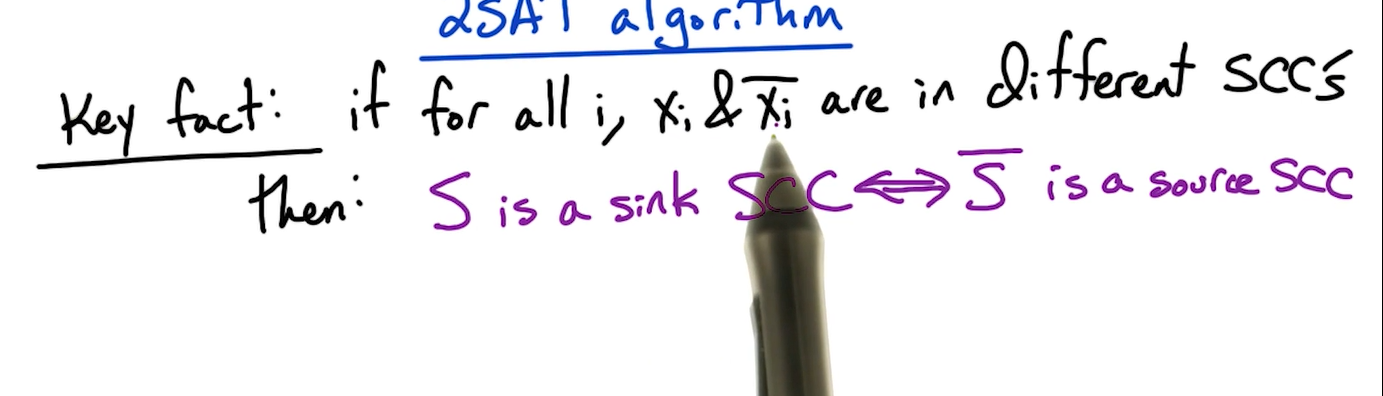 2SAT algorithm
Key fact: if for all i, xᵢ & x̅ᵢ are in different SCC's
then: S is a sink SCC ⟺ S̅ is a source SCC